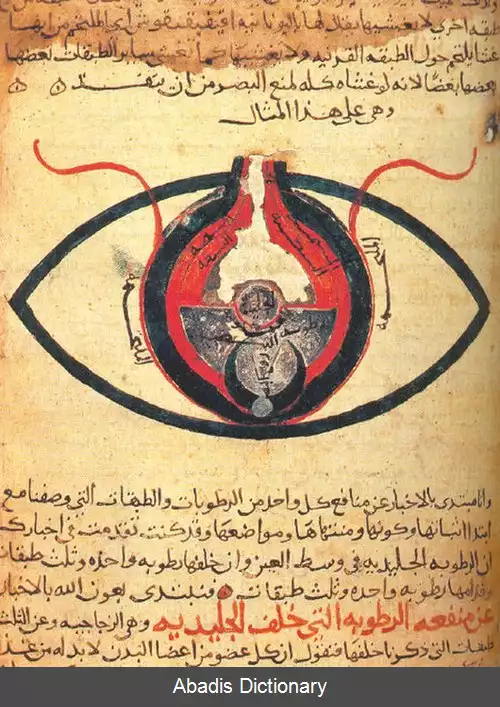 طبقه اخرى لا يغشيها يقال لها باليونانيه
حول الطبقه القرنيه ولا يغشيها كما يغشى ساير الطبقات بعضها
بعضها بعضًا لانه لو غشاه كله لمنع البصر من ان ينفذ
وهى على هذا المثال
الجليديه
وانا مبتدى بالاخبار عن منافع كل واحد من الرطوبات والطبقات التى وصفنا مع
ابتدا انباتها وكونها ومنتهاها ومواضعها وقد كنت تقدمت فى اخبارك
ان الرطوبه الجليديه فى وسط العين وان خلفها رطوبه واحده وثلث طبقات
وقدامها رطوبه واحده وثلث طبقات ونبتدى بعون الله بالاخبار
عن منفعه الرطوبه التى خلف الجليديه وهى الزجاجيه وعن الثلث
طبقات التى ذكرنا خلفها فنقول ان كل عضو من اعضا البدن لا بد له من غذا
Abadis Dictionary